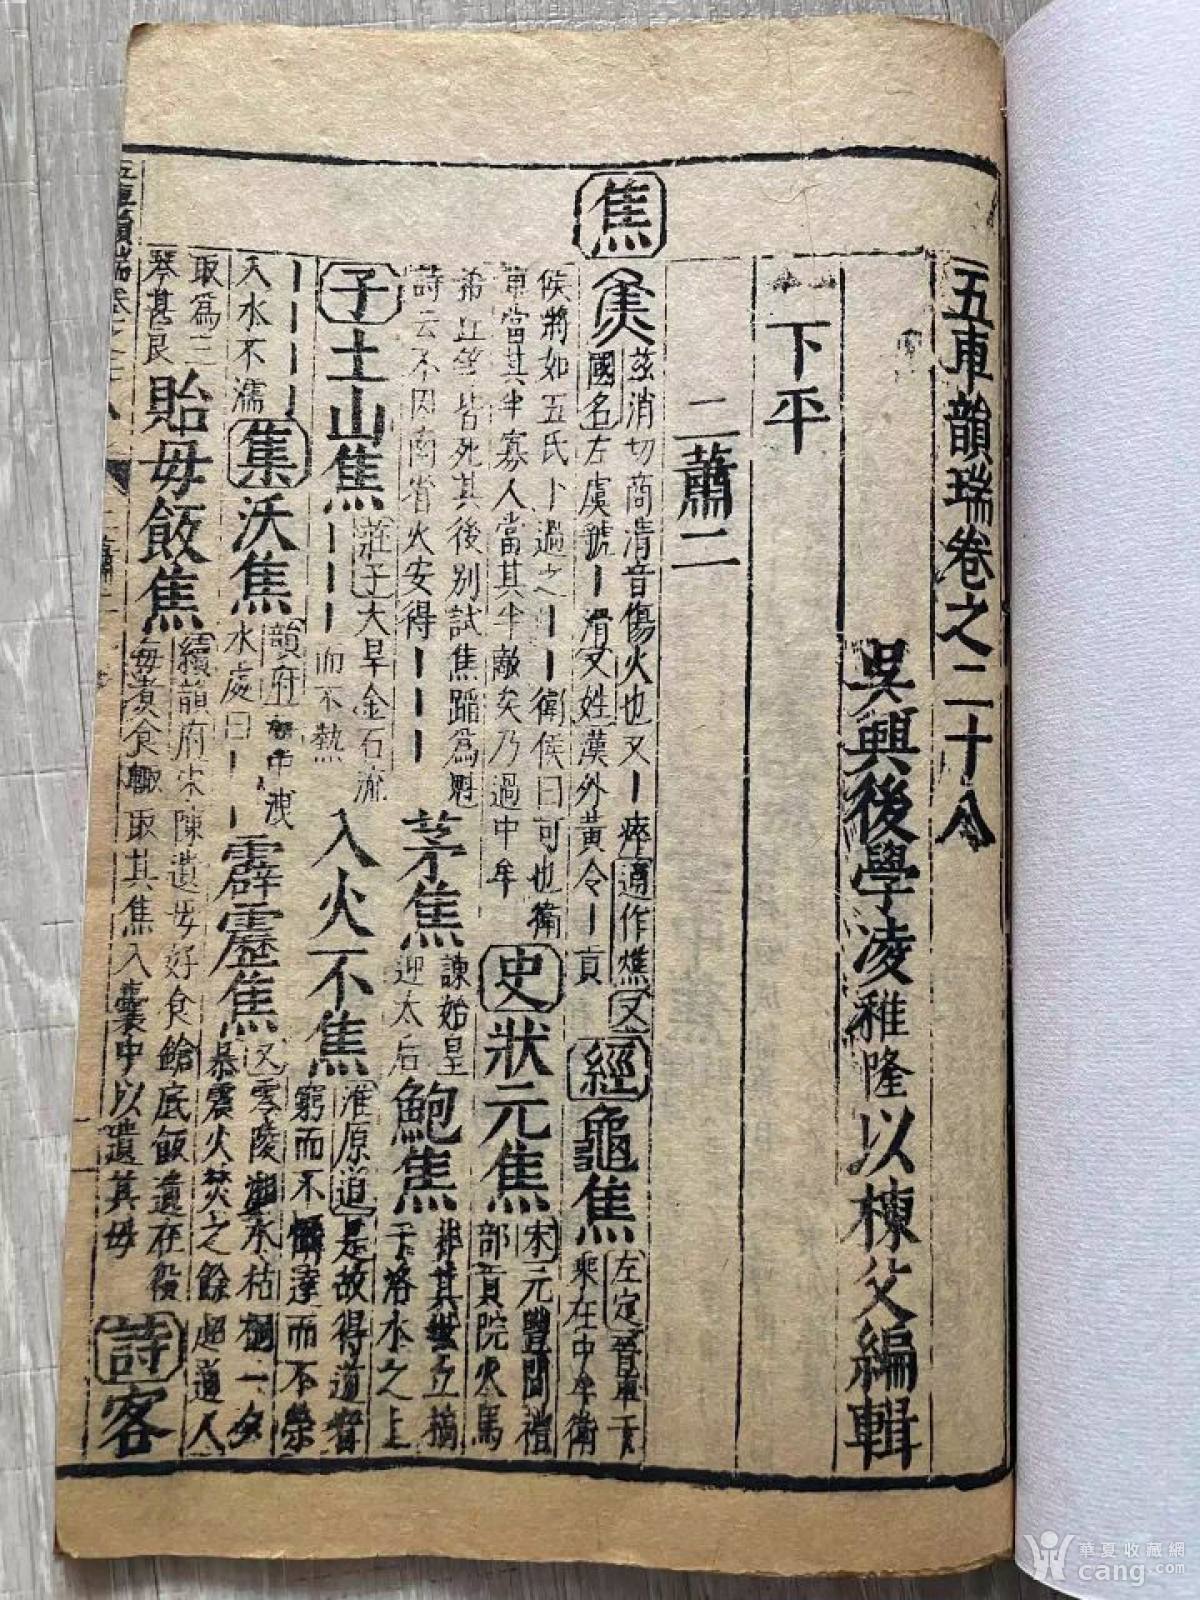 五車韻瑞卷之二十八
吳興後學凌稚隆以棟父編輯
下平
二蕭二
焦
𤋳茲消切商清音傷火也又丨瘁通作燋又
國名左虞虢丨滑又姓漢外黃令丨貢
經龜焦左定晉車千
乘在中牟衛
侯將如五氏卜過之丨丨衛侯曰可也衛
車當其半寡人當其半敵矣乃過中牟
史狀元焦宋元豐間禮
部貢院火馬
希丘等皆死其後別試焦蹈為魁
詩云不因南省火安得丨丨丨
茅焦諫始皇
迎太后
鮑焦非其世立槁
于洛水之上
子土山焦莊子大旱金石流
丨丨丨而不熱
入火不焦淮原道是故得道者
窮而不懾達而不榮
入水不濡
丨丨丨丨
集沃焦韻府 中洩
水處曰丨丨
霹靂焦又零陵 水枯桐一夕
暴震火焚之餘超道人
取為三
琴甚良
貽母飯焦續韻府宋陳遺母好食鐺底飯遺在役
每煮食輒取其焦入囊中以遺其母
詩客
五車韻瑞卷之二十八
二蕭二
華夏收藏網
cang.com